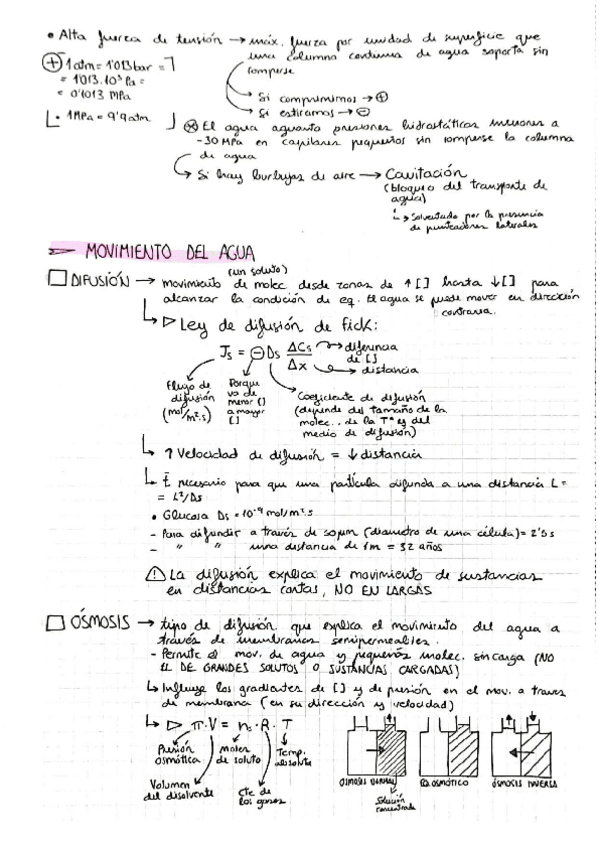 • Alta fuerza de tensión → máx. fuerza por unidad de superficie que
una columna continua de agua soporta sin
romperse
+ 1 atm = 1'013 bar =
= 1'013·10⁵ Pa =
= 0'1013 MPa
• 1MPa = 9'9 atm
→ Si comprimimos → +
→ Si estiramos → -
El agua aguanta presiones hidrostáticas menores a
-30 MPa en capilares pequeños sin romperse la columna
de agua
→ Si hay burbujas de aire → Cavitación
(bloqueo del transporte de
agua)
↳ Solventado por la presencia
de punteaduras laterales
MOVIMIENTO DEL AGUA
(un soluto)
□ DIFUSIÓN → movimiento de molec desde zonas de ↑[] hasta ↓[] para
alcanzar la condición de eq. El agua se puede mover en dirección
contraria.
↳ ▷ Ley de difusión de Fick:
Js = - Ds ΔCs/Δx
→ diferencia
de []
→ distancia
Flujo de
difusión
(mol/m²·s)
Porque
va de
menor []
a mayor
[]
Coeficiente de difusión
(depende del tamaño de la
molec., de la Tª y del
medio de difusión)
↳ ↑ Velocidad de difusión = ↓ distancia
↳ t̄ necesario para que una partícula difunda a una distancia L =
= L²/Ds
• Glucosa Ds = 10⁻⁹ mol/m²·s
- Para difundir a través de 50 µm (diámetro de una célula) = 2'5 s
- " " una distancia de 1m = 32 años
⚠ La difusión explica el movimiento de sustancias
en distancias cortas, NO EN LARGAS
□ ÓSMOSIS → tipo de difusión que explica el movimiento del agua a
través de membranas semipermeables.
- Permite el mov. de agua y pequeñas molec. sin carga (NO
EL DE GRANDES SOLUTOS O SUSTANCIAS CARGADAS)
↳ Influye los gradientes de [] y de presión en el mov. a través
de membrana (en su dirección y velocidad)
↳ ▷ π·V = ns·R·T
Presión
osmótica
moles
de soluto
Temp.
absoluta
Volumen
del disolvente
Cte de
los gases
ÓSMOSIS NORMAL
EQ. OSMÓTICO
ÓSMOSIS INVERSA
Solución
concentrada